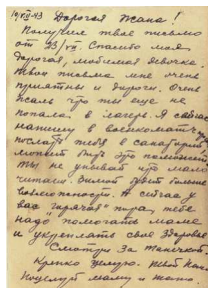 10/VIII-43 Дорогая Жана!
Получил твое письмо
от 23/VII. Спасибо моя
дорогая, любимая девочка.
Твои письма мне очень
приятны и дороги. Очень
жаль что ты еще не
попала в лагерь. Я сейчас
напишу в военкомат чтоб
послали тебя в санаторий
может быть это поможет
Ты не унывай что мало
читаешь. Зимой будет больше
возможности. А сейчас у
вас "горячая" пора, тебе
надо помогать маме
и укреплять свое здоровье
Смотри за Танечкой.
Крепко целую. Твой
Поцелуй маму и